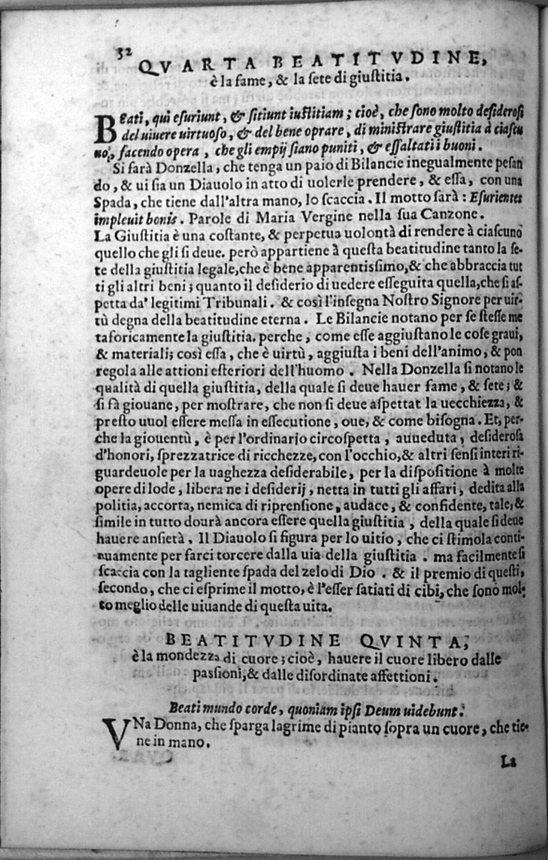 32
QVARTA BEATITVDINE,
è la fame, & la ſete di giuſtitia.
BEati, qui eſuriunt, & ſitiunt iuſtitiam; cioè, che ſono molto deſideroſi
del uiuere uirtuoſo, & del bene oprare, di miniſtrare giuſtitia à ciaſcu
no, facendo opera, che gli empij ſiano puniti, & eſſaltati i buoni.
Si farà Donzella, che tenga un paio di Bilancie inegualmente peſan
do, & ui ſia un Diauolo in atto di uolerle prendere, & eſſa, con una
Spada, che tiene dall'altra mano, lo ſcaccia. Il motto ſarà: Eſurientes
impleuit bonis. Parole di Maria Vergine nella ſua Canzone.
La Giuſtitia è una coſtante, & perpetua uolontà di rendere à ciaſcuno
quello che gli ſi deue. però appartiene à queſta beatitudine tanto la ſe-
te della giuſtitia legale, che è bene apparentiſſimo, & che abbraccia tut
ti gli altri beni; quanto il deſiderio di uedere eſſeguita quella, che ſi aſ-
petta da' legitimi Tribunali. & così l'inſegna Noſtro Signore per uir-
tù degna della beatitudine eterna. Le Bilancie notano per ſe ſteſſe me
taforicamente la giuſtitia. perche, come eſſe aggiuſtano le coſe graui,
& materiali; così eſſa, che è uirtù, aggiuſta i beni dell'animo, & pon
regola alle attioni eſteriori dell'huomo. Nella Donzella ſi notano le
qualità di quella giuſtitia, della quale ſi deue hauer fame, & ſete; &
ſi fà giouane, per moſtrare, che non ſi deue aſpettat la uecchiezza, &
preſto uuol eſſere meſſa in eſſecutione, oue, & come biſogna. Et, per-
che la giouentù, è per l'ordinario circoſpetta, auueduta, deſideroſa
d'honori, ſprezzatrice di ricchezze, con l'occhio, & altri ſenſi interi ri-
guardeuole per la uaghezza deſiderabile, per la diſpoſitione à molte
opere di lode, libera ne i deſiderij, netta in tutti gli affari, dedita alla
politia, accorta, nemica di riprenſione, audace, & confidente, tale, &
ſimile in tutto dourà ancora eſſere quella giuſtitia, della quale ſi deue
hauere anſietà. Il Diauolo ſi figura per lo uitio, che ci ſtimola conti-
nuamente per farci torcere dalla uia della giuſtitia. ma facilmente ſi
ſcaccia con la tagliente ſpada del zelo di Dio. & il premio di queſti,
ſecondo, che ci eſprime il motto, è l'eſſer ſatiati di cibi, che ſono mol-
to meglio delle uiuande di queſta uita.
BEATITVDINE QVINTA,
è la mondezza di cuore; cioè, hauere il cuore libero dalle
paſſioni, & dalle diſordinate affettioni.
Beati mundo corde, quoniam ipſi Deum uidebunt.
VNa Donna, che ſparga lagrime di pianto ſopra un cuore, che tie-
ne in mano.
La